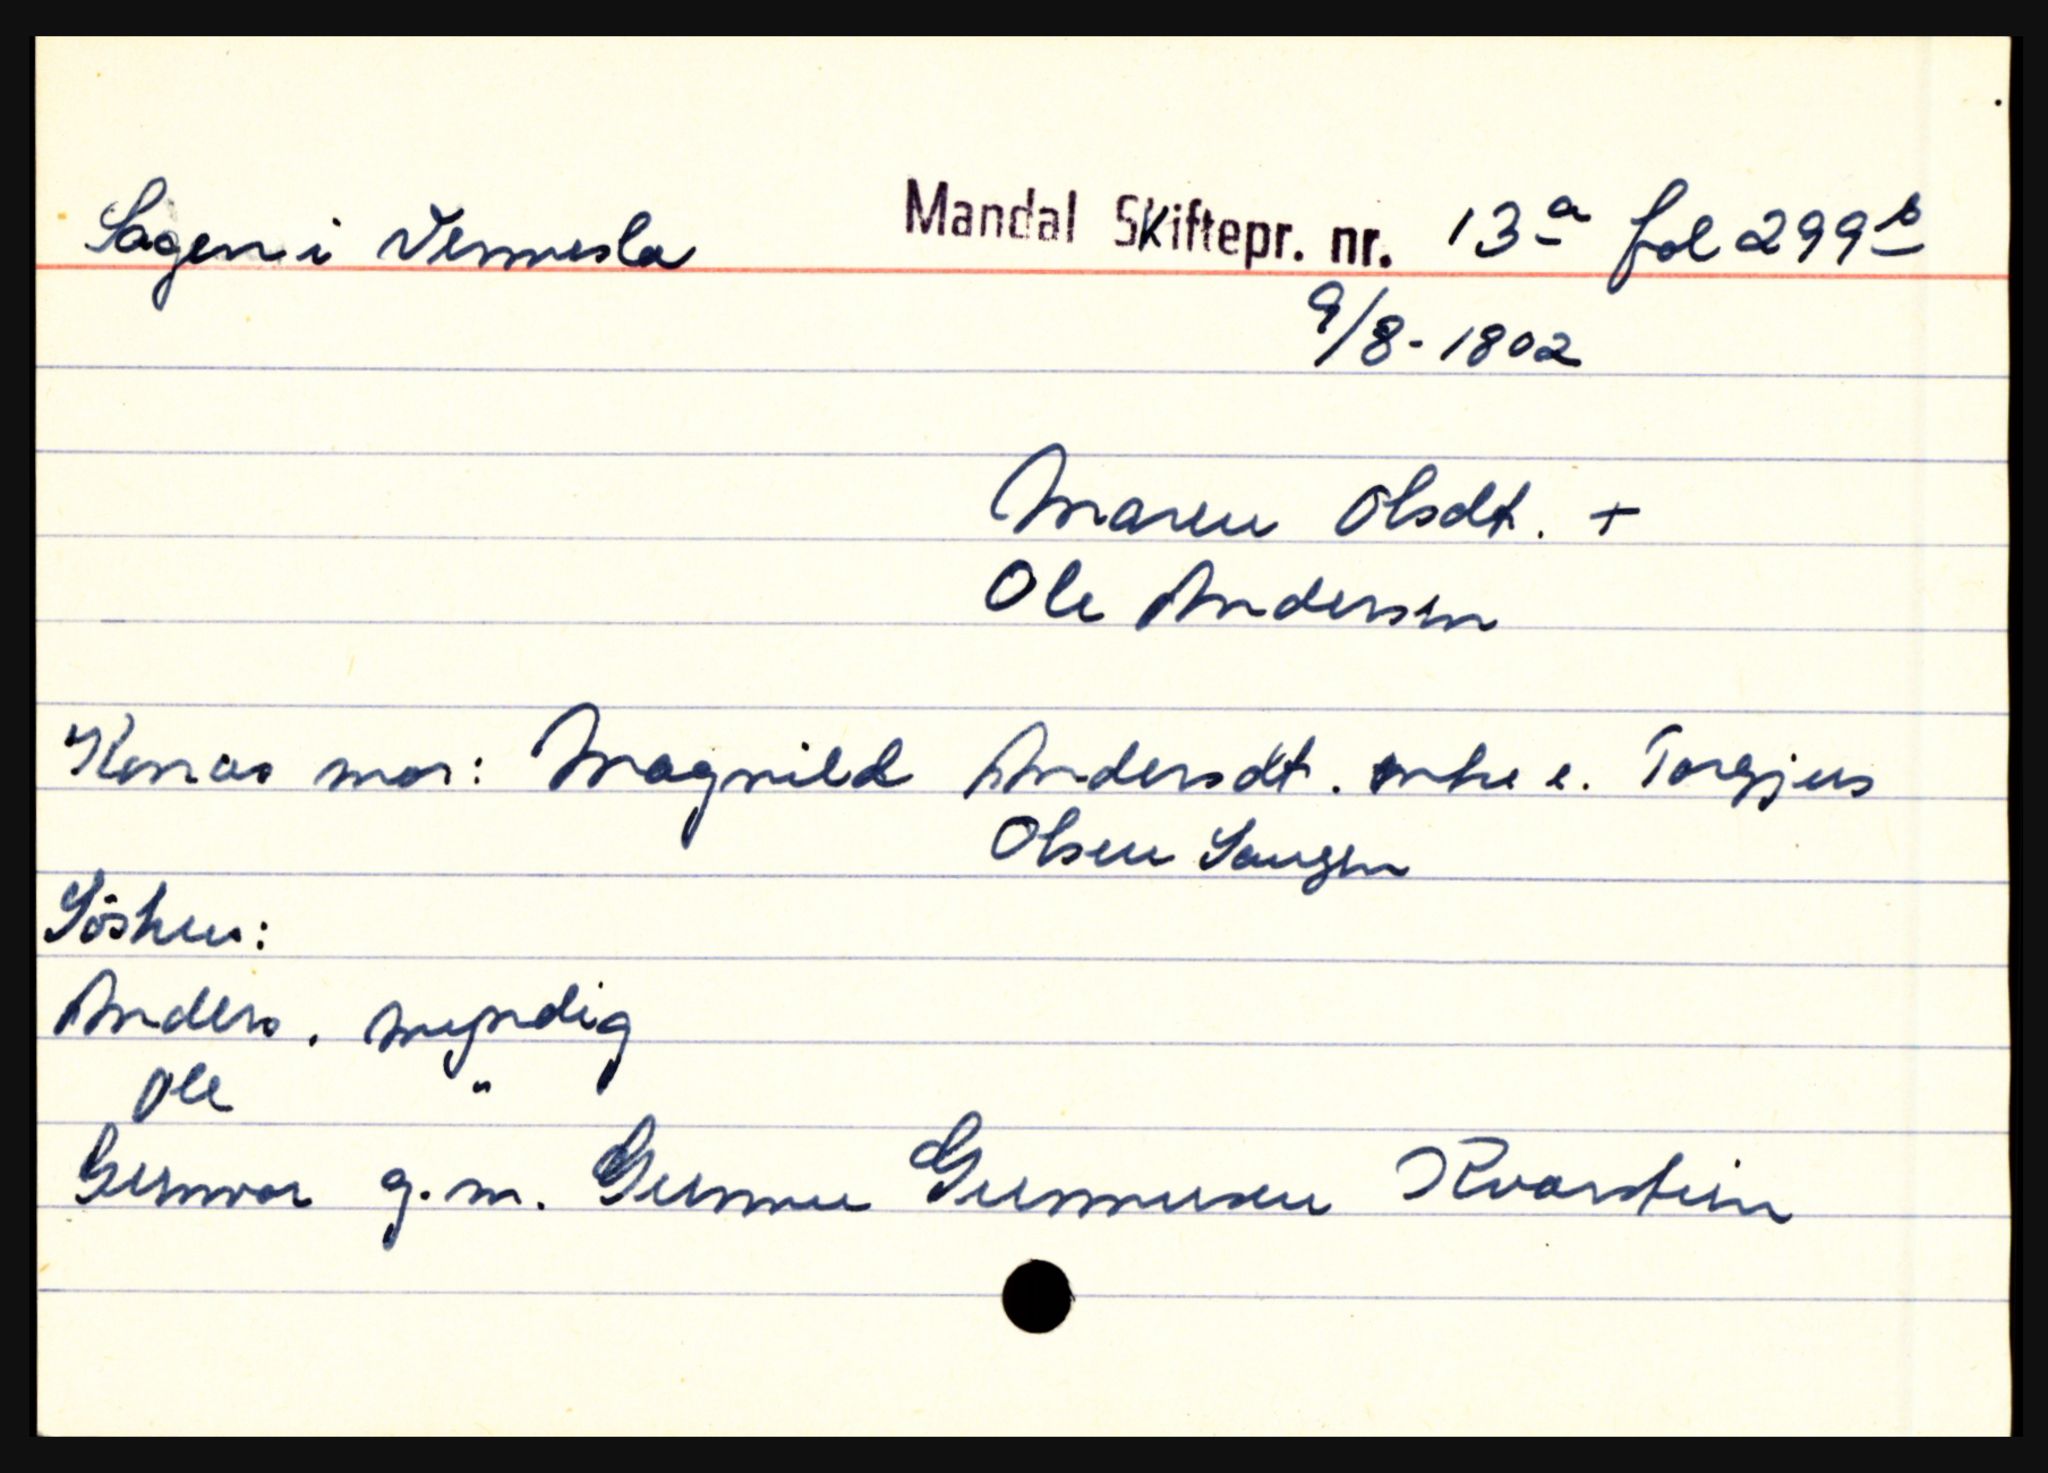 Sagen i Vennesla Mandal Skiftepr. nr. 13a fol 299b
9/8-1802
Maren Olsdt. +
Ole Andersen
Konas mor: Magnild Andersdt. enke e. Torgjus
Olsen Saugen
Søsken:
Anders, myndig
Ole "
Gunvor g.m. Gunnu Gunnusen Kvarstein